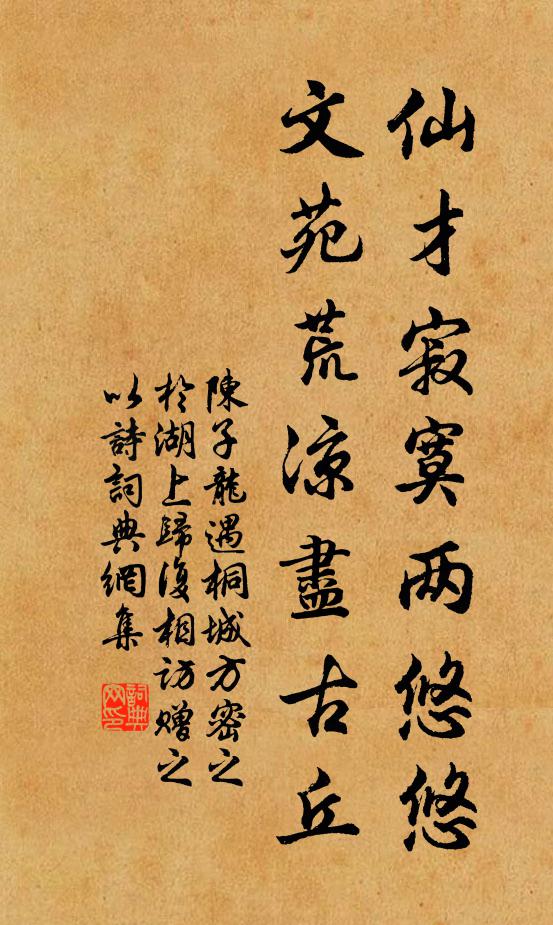 仙才寂寞两悠悠
文苑荒凉盡古丘
陳子龍遇桐城方密之
於湖上歸復相訪贈之
以詩詞典網集
詞典
网印